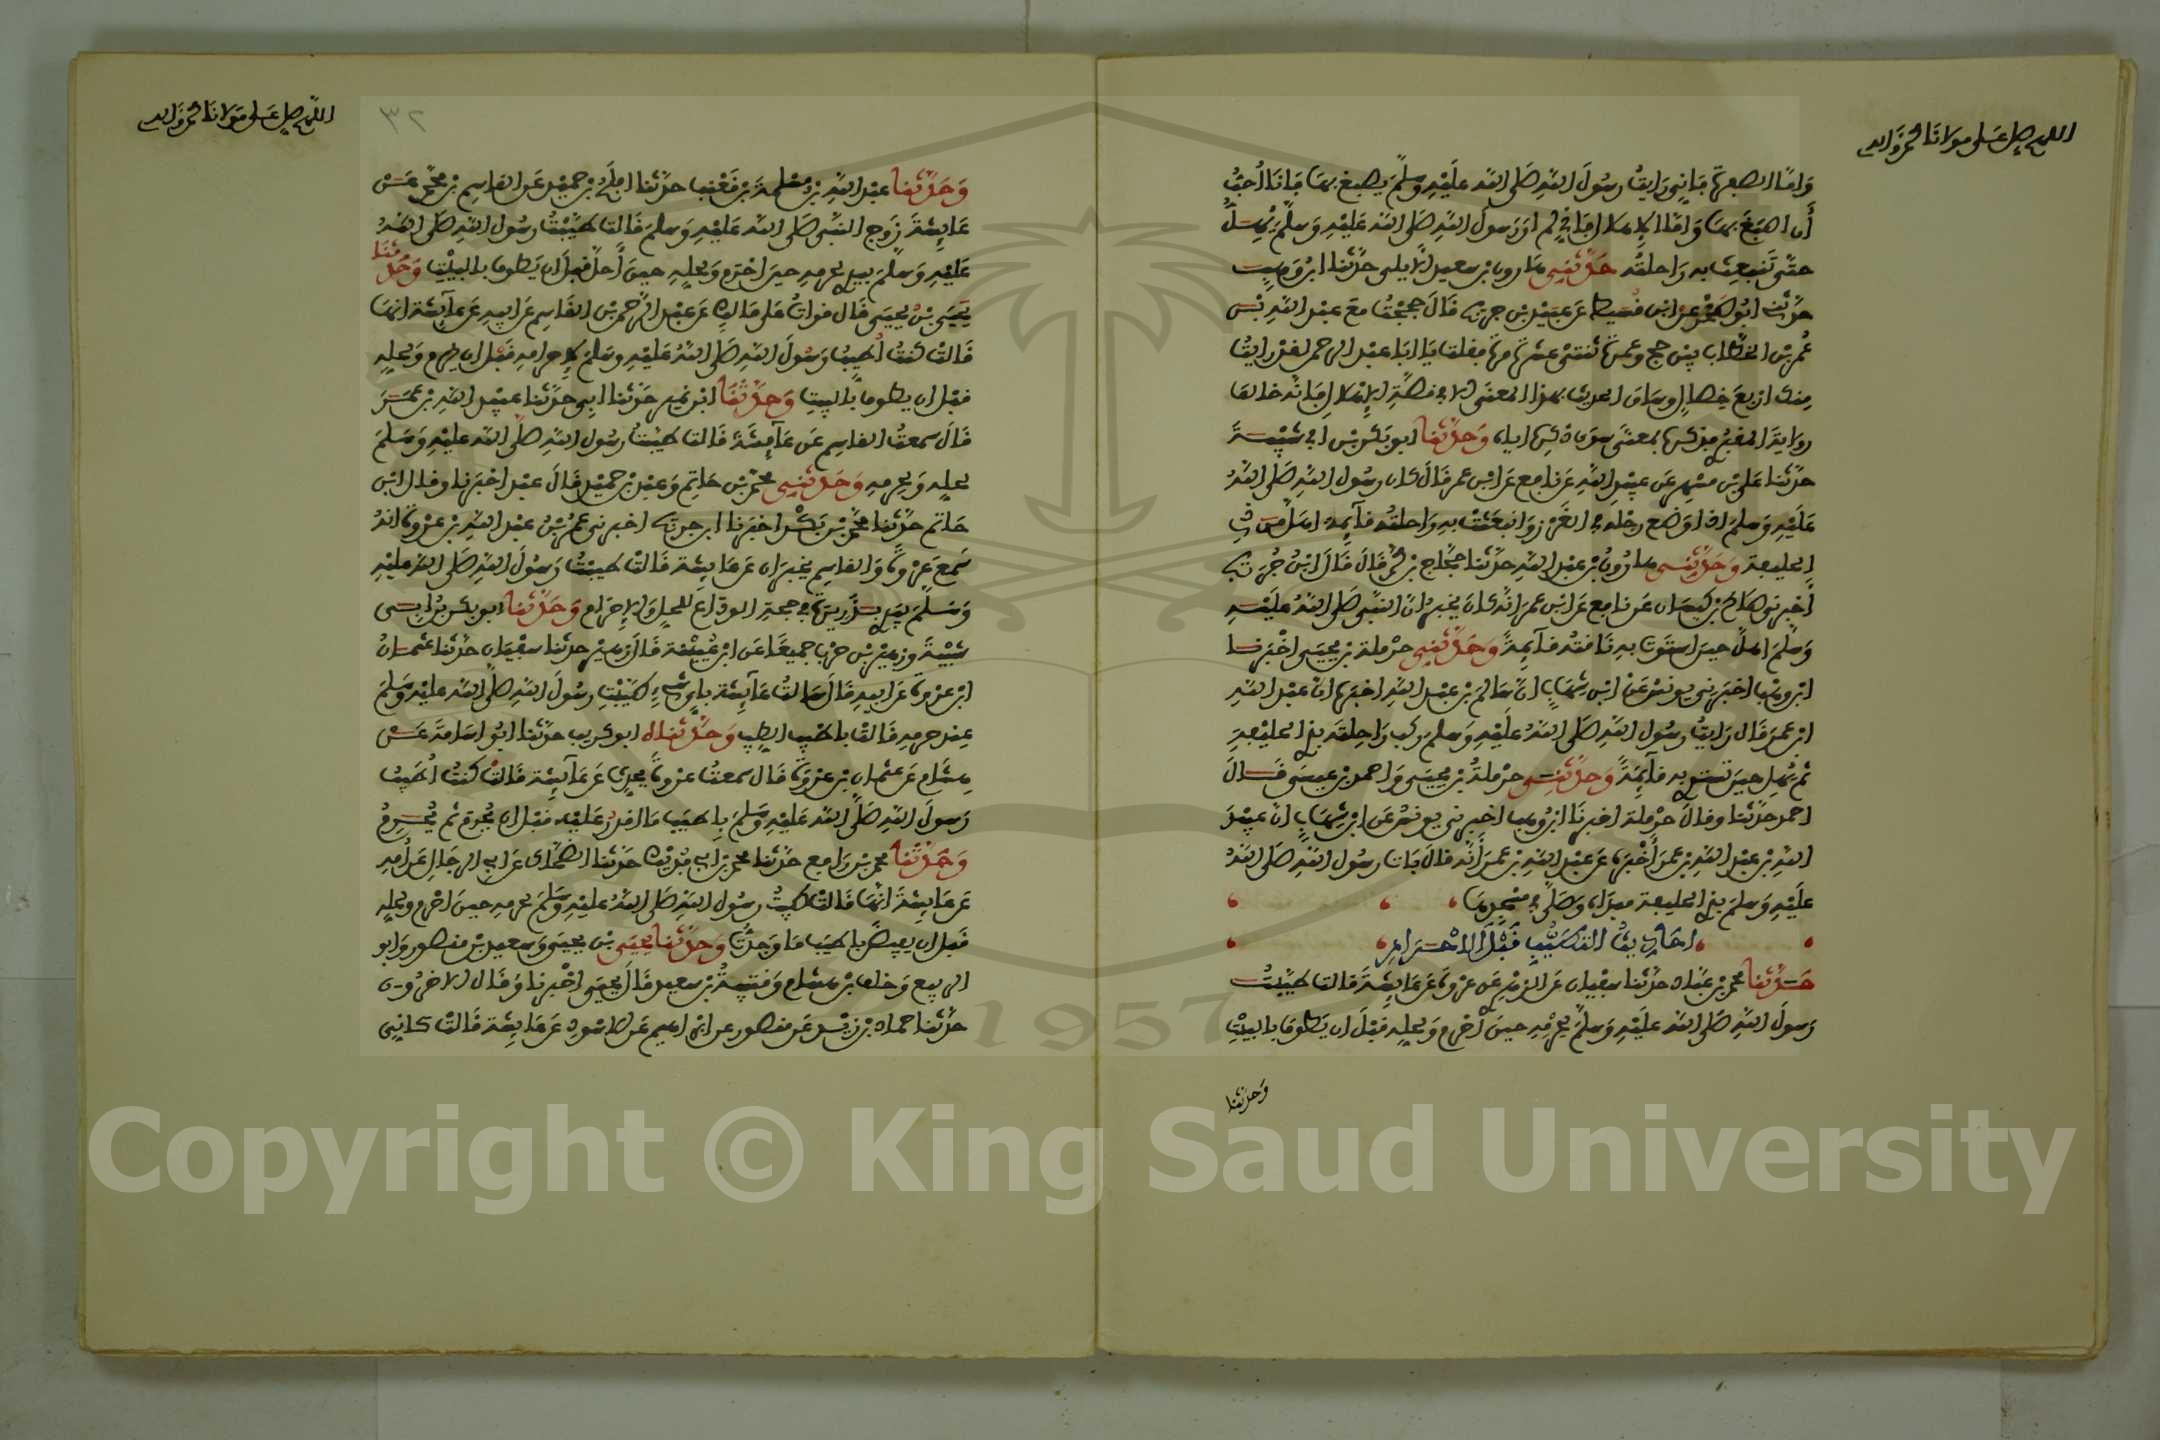 اللهم صل على مولانا محمد وآله
وأما الصفرة فإني رأيت رسول الله صلى الله عليه وسلم يصبغ بها فأنا أحب
أن أصبغ بها وأما الإهلال فإني لم أر رسول الله صلى الله عليه وسلم يهل
حتى تنبعث به راحلته حدثني هارون بن سعيد الأيلي حدثنا ابن وهب
حدثني أبو صخر عن ابن قسيط عن عبيد بن جريج قال حججت مع عبد الله بن
عمر بن الخطاب بين حج وعمرة ثنتي عشرة مرة فقلت يا أبا عبد الرحمن لقد رأيت
منك أربع خصال وساق الحديث بهذا المعنى إلا في قصة الإهلال فإنه خالف
رواية المقبري فذكره بمعنى سوى ذكره إياه وحدثنا أبو بكر بن أبي شيبة
حدثنا علي بن مسهر عن عبيد الله عن نافع عن ابن عمر قال كان رسول الله صلى الله
عليه وسلم إذا وضع رجله في الغرز وانبعثت به راحلته قائمة أهل من ذي
الحليفة وحدثني هارون بن عبد الله حدثنا حجاج بن محمد قال قال ابن جريج
أخبرني صالح بن كيسان عن نافع عن ابن عمر أنه كان يخبر أن النبي صلى الله عليه
وسلم أهل حين استوت به ناقته قائمة وحدثني حرملة بن يحيى أخبرنا
ابن وهب أخبرني يونس عن ابن شهاب أن سالم بن عبد الله أخبره أن عبد الله
ابن عمر قال رأيت رسول الله صلى الله عليه وسلم ركب راحلته بذي الحليفة
ثم يهل حين تستوي به قائمة وحدثني حرملة بن يحيى وأحمد بن عيسى قال
أحمد حدثنا وقال حرملة أخبرنا ابن وهب أخبرني يونس عن ابن شهاب أن عبيد
الله بن عبد الله بن عمر أخبره عن عبد الله بن عمر أنه قال بات رسول الله صلى الله
عليه وسلم بذي الحليفة مبدأه وصلى في مسجدها
أحاديث التطييب قبل الإحرام
حدثنا محمد بن عباد حدثنا سفيان عن الزهري عن عروة عن عايشة قالت طيبت
رسول الله صلى الله عليه وسلم لحرمه حين أحرم ولحله قبل أن يطوف بالبيت
وحدثنا
اللهم صل على مولانا محمد وآله
٣٢
وحدثنا عبد الله بن مسلمة بن قعنب حدثنا أفلح بن حميد عن القاسم بن محمد عن
عايشة زوج النبي صلى الله عليه وسلم قالت طيبت رسول الله صلى الله
عليه وسلم بيدي لحرمه حين أحرم ولحله حين أحل قبل أن يطوف بالبيت وحدثنا
يحيى بن يحيى قال قرأت على مالك عن عبد الرحمن بن القاسم عن أبيه عن عايشة أنها
قالت كنت أطيب رسول الله صلى الله عليه وسلم لإحرامه قبل أن يحرم ولحله
قبل أن يطوف بالبيت وحدثنا ابن نمير حدثنا أبي حدثنا عبيد الله بن عمر
قال سمعت القاسم عن عايشة قالت طيبت رسول الله صلى الله عليه وسلم
لحله ولحرمه وحدثني محمد بن حاتم وعبد بن حميد قال عبد أخبرنا وقال ابن
حاتم حدثنا محمد بن بكر أخبرنا ابن جريج أخبرني عمر بن عبد الله بن عروة أنه
سمع عروة والقاسم يخبران عن عايشة قالت طيبت رسول الله صلى الله عليه
وسلم بيدي بذريرة في حجة الوداع للحل والإحرام وحدثنا أبو بكر بن أبي
شيبة وزهير بن حرب جميعا عن ابن عيينة قال زهير حدثنا سفيان حدثنا عثمان
ابن عروة عن أبيه قال سألت عايشة بأي شيء طيبت رسول الله صلى الله عليه وسلم
عند حرمه قالت بأطيب الطيب وحدثناه أبو كريب حدثنا أبو أسامة عن
هشام عن عثمان بن عروة قال سمعت عروة يحدث عن عايشة قالت كنت أطيب
رسول الله صلى الله عليه وسلم بأطيب ما أقدر عليه قبل أن يحرم ثم يحرم
وحدثنا محمد بن رافع حدثنا محمد بن أبي فديك حدثنا الضحاك عن أبي الرجال عن أمه
عن عايشة أنها قالت طيبت رسول الله صلى الله عليه وسلم لحرمه حين أحرم ولحله
قبل أن يفيض بأطيب ما وجدت وحدثنا يحيى بن يحيى وسعيد بن منصور وأبو
الربيع وخلف بن هشام وقتيبة بن سعيد قال يحيى أخبرنا وقال الآخرون
حدثنا حماد بن زيد عن منصور عن إبراهيم عن الأسود عن عايشة قالت كأني
Copyright © King Saud University
1957